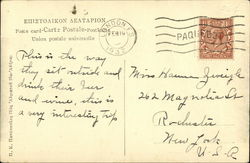 ΕΠΙΣΤΟΛΙΚΟΝ ΔΕΛΤΑΡΙΟΝ
Post card-Carte Postale-Postkarte
Union postale universelle
LONDON
FEB 14
1933
PAQUEBOT
This is the way
they sit outside and
drink their beer
and wine, this is
a very interesting trip
Miss Hannah Zweigle
262 Magnolia St
Rochester
New York
U.S.A.